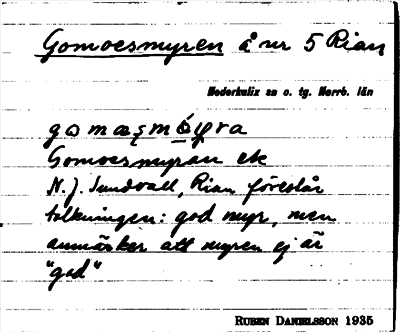 Gomoesmyren å nr 5 Rian
Nederkalix sn o. tg. Norrb. län
Gomoesmyran ek
N. J. Sundvall, Rian föreslår
tolkningen: god myr, men
anmärker att myren ej är
"god"
RUBEN DANIELSSON 1935